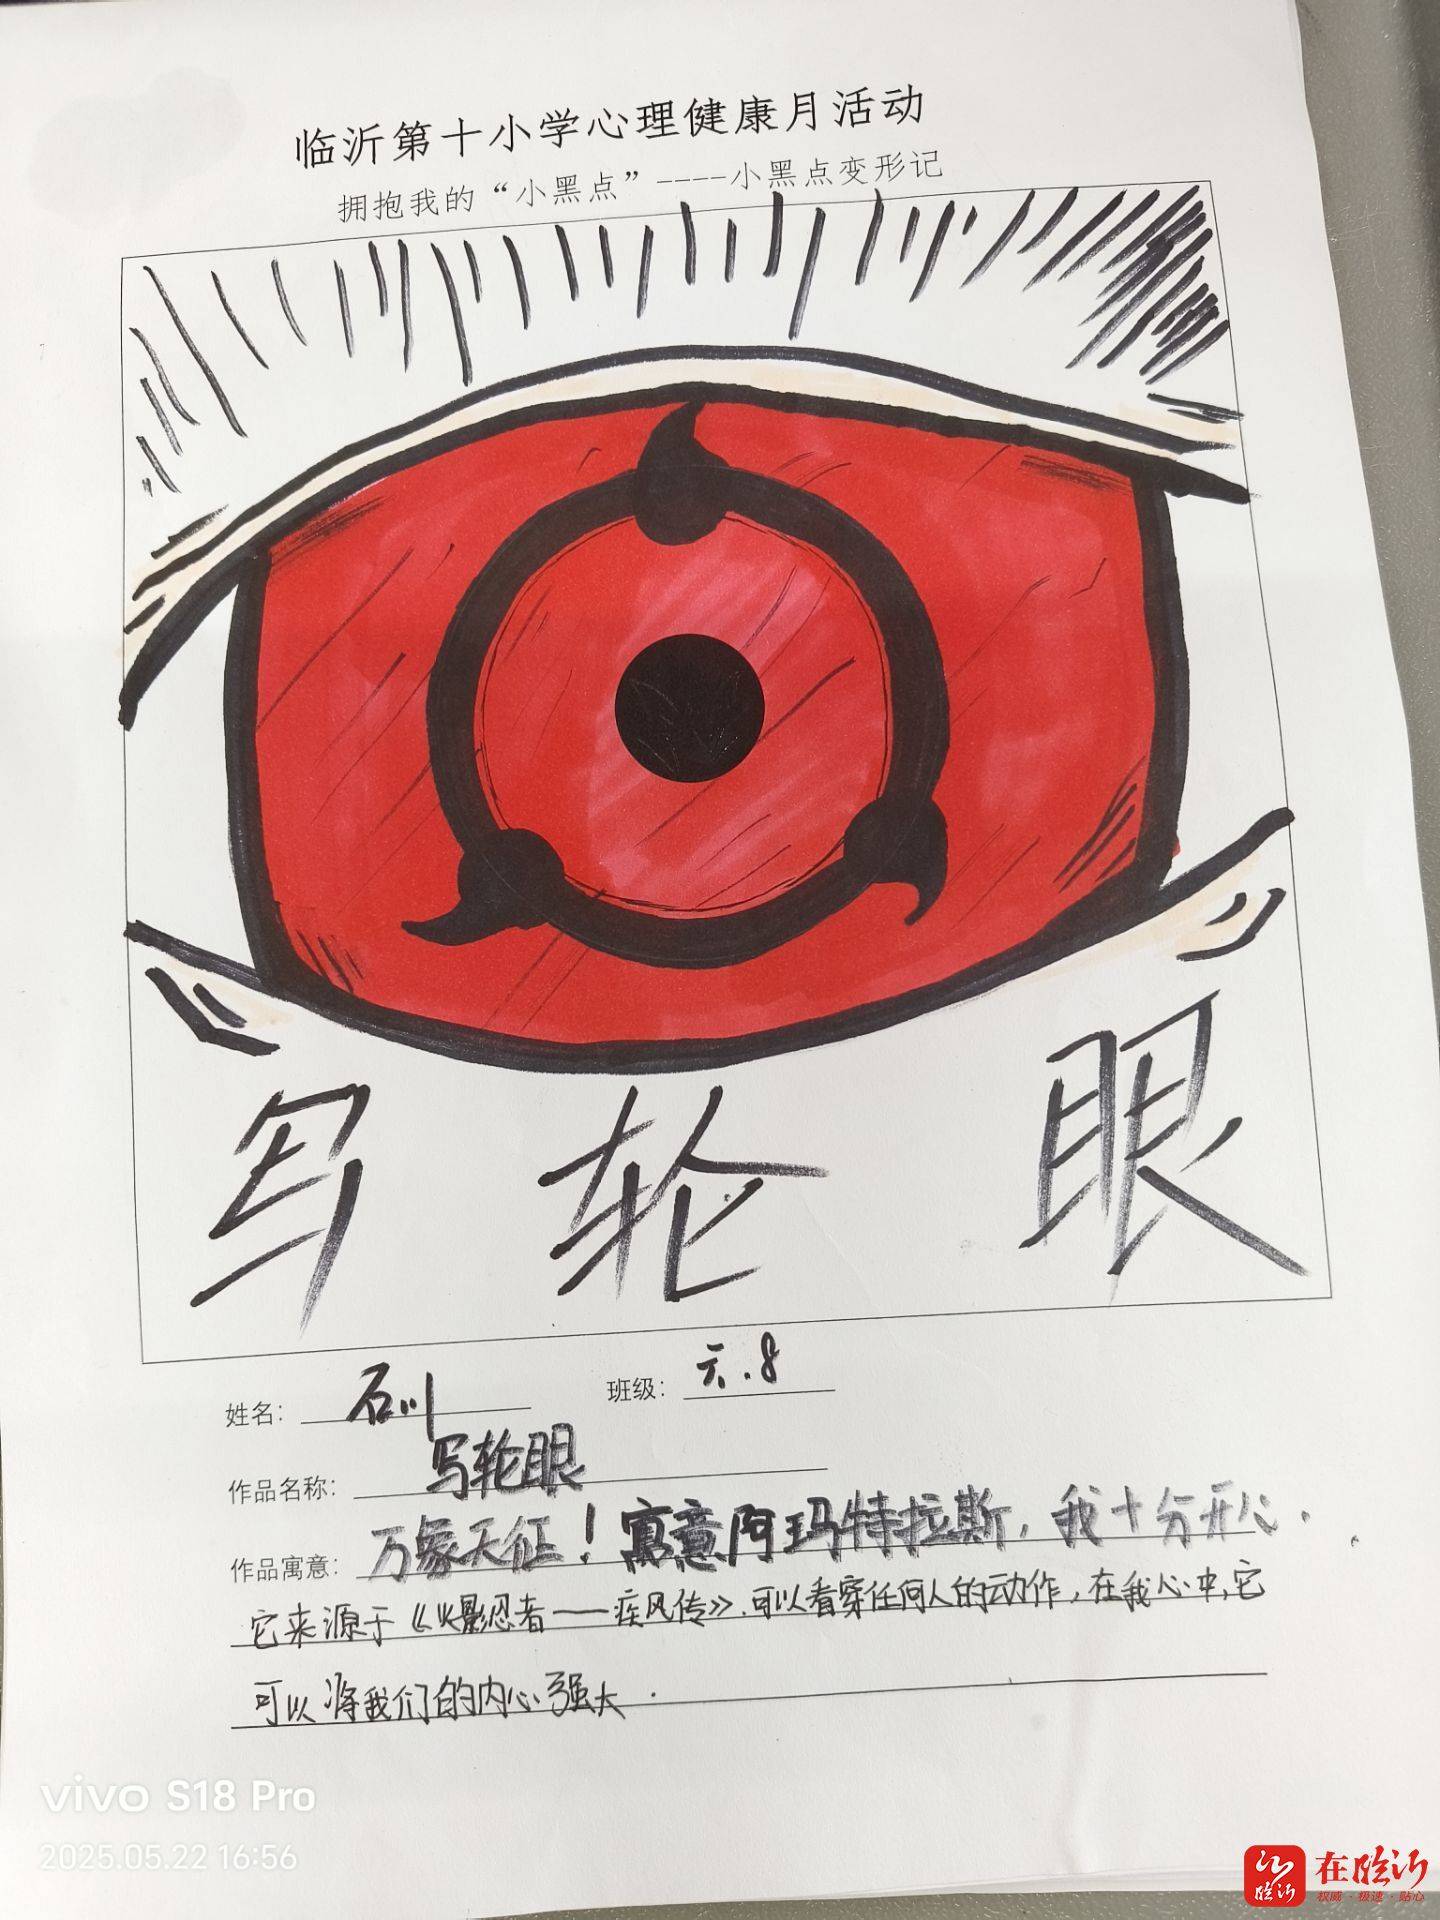 临沂第十小学心理健康月活动
拥抱我的“小黑点”----小黑点变形记
写轮眼
姓名: 石川 班级: 六.8
作品名称: 写轮眼
作品寓意: 万象天征！寓意阿玛特拉斯，我十分开心.
它来源于《火影忍者——疾风传》.可以看穿任何人的动作，在我心中,它
可以将我们的内心强大.
vivo S18 Pro
2025.05.22 16:56
临沂
在临沂
权威·极速·贴心